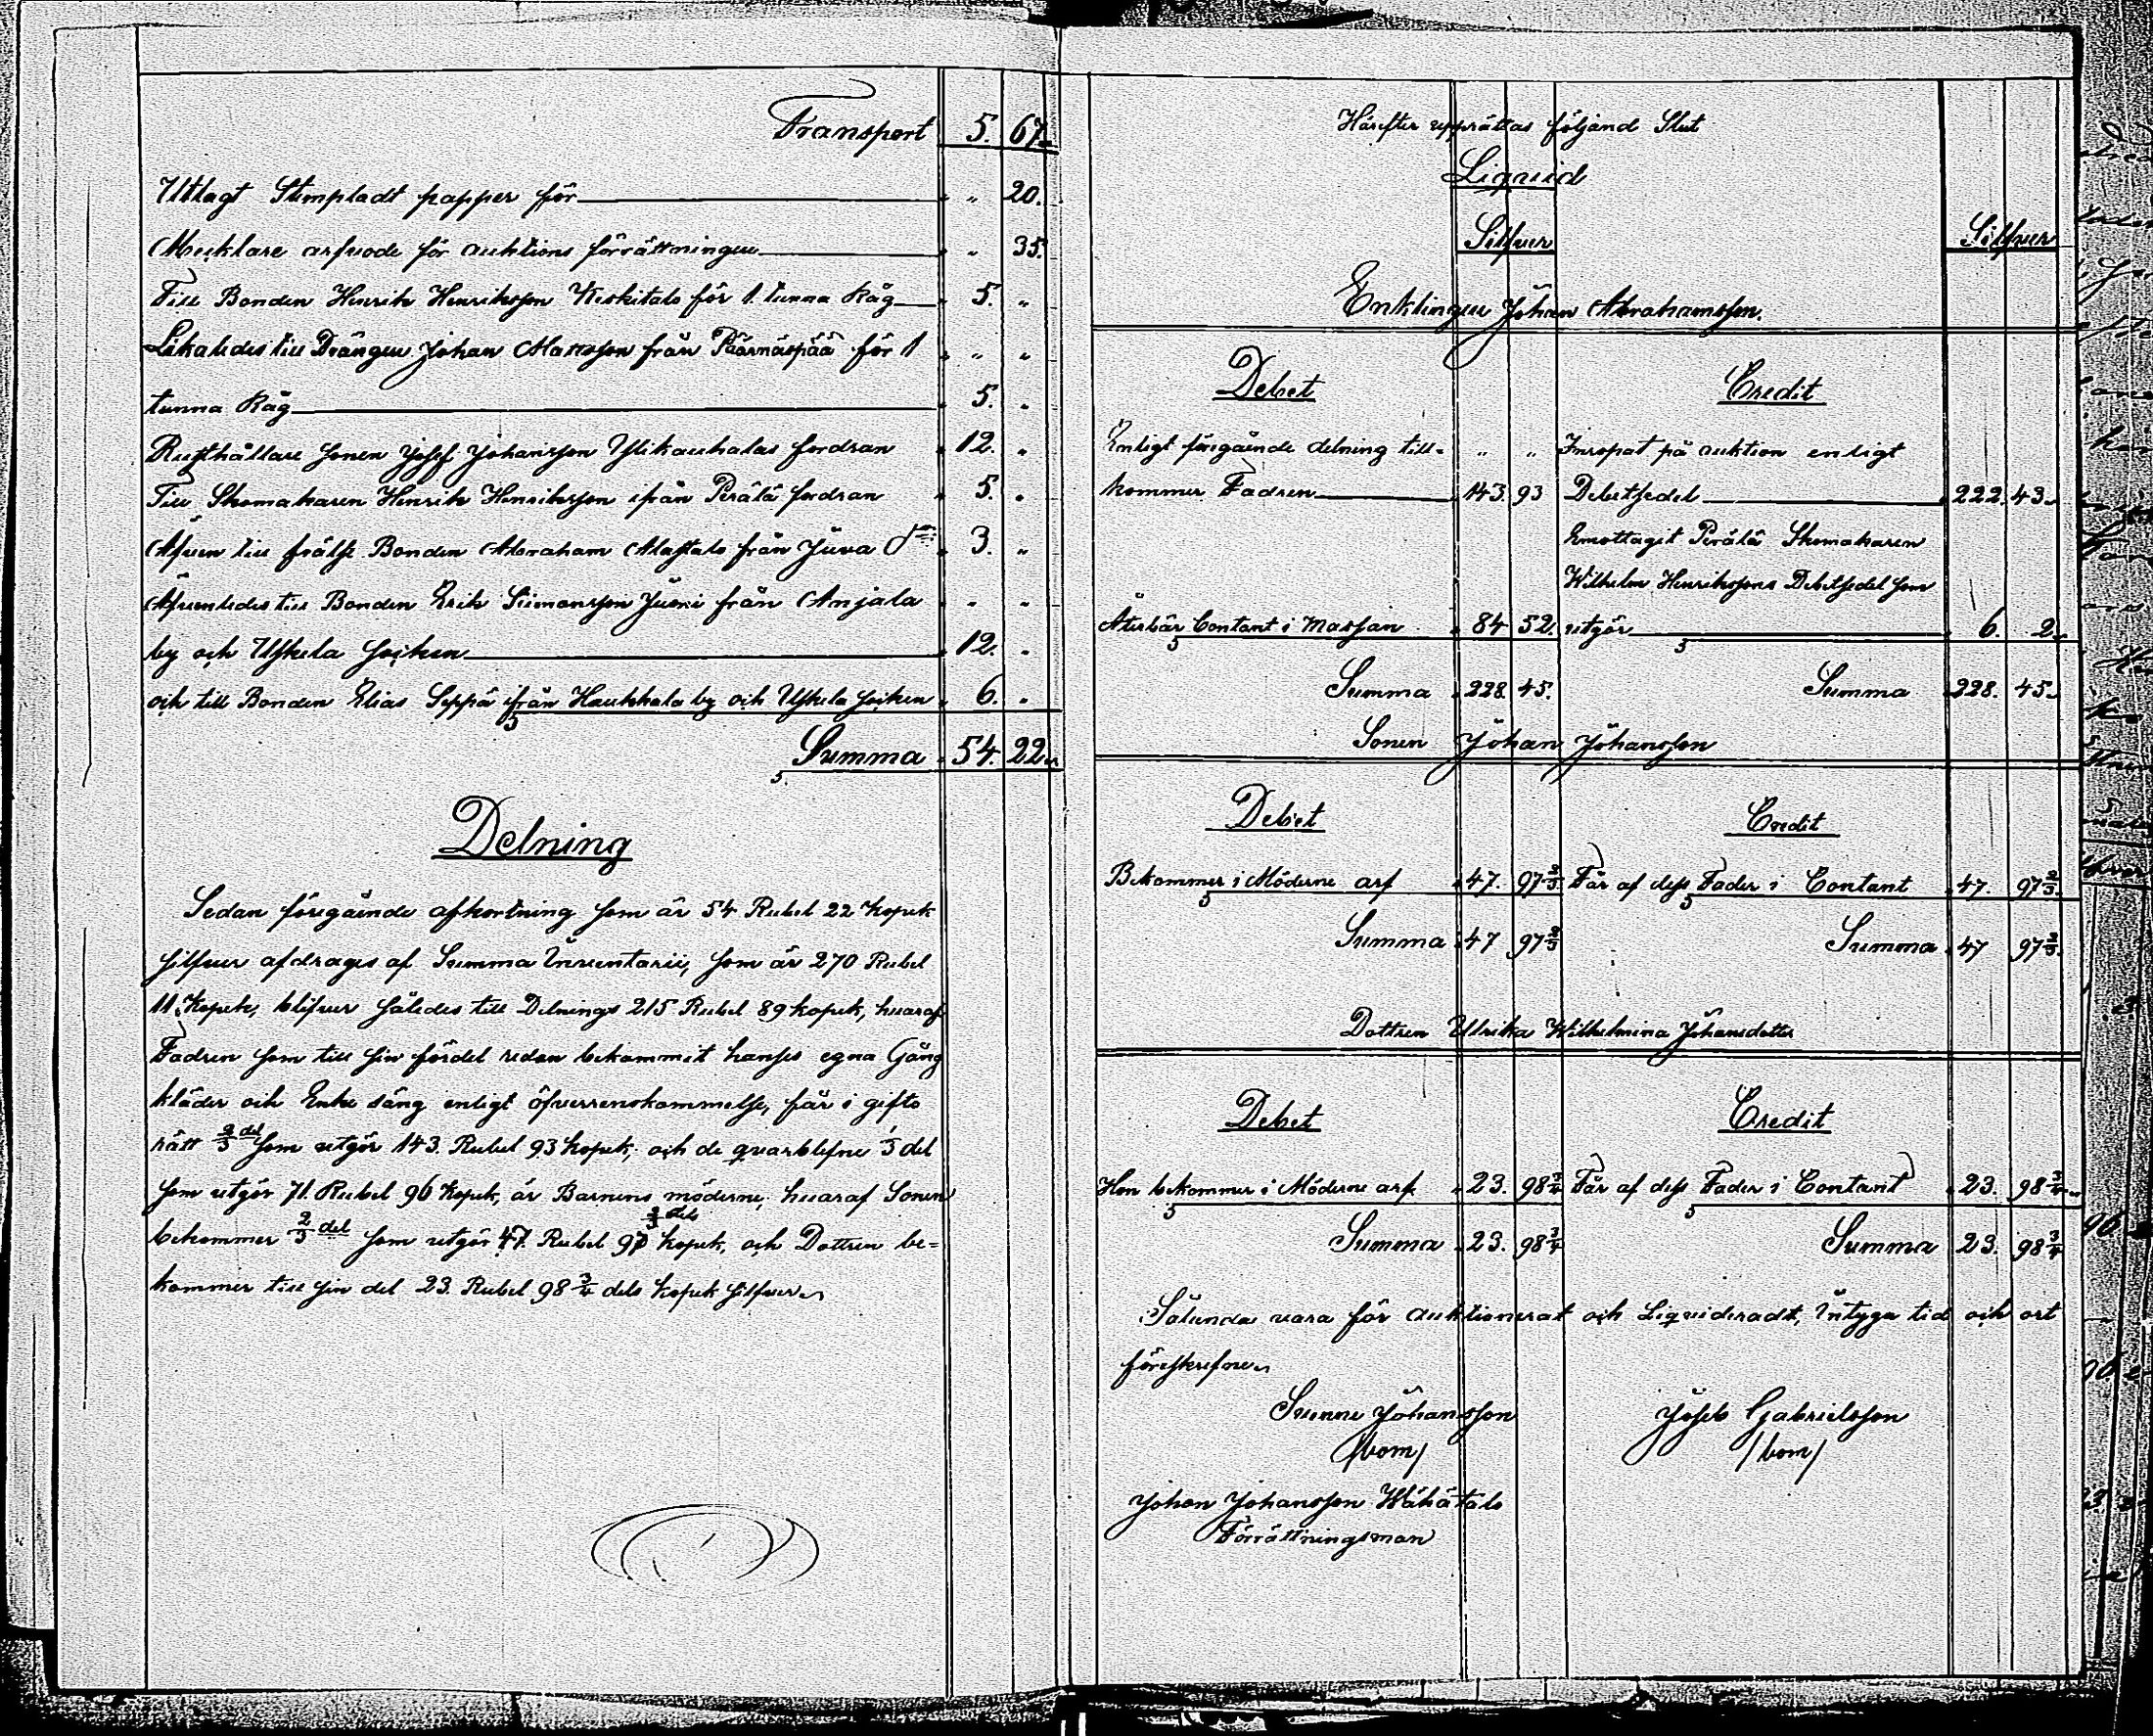 Transport 5. 67.
Utlagt Stempladt papper för " 20.
Mecklare arfvode för auktions förrättningen " 35.
Till Bonden Henrik Henriksson Keskitalo för 1. tunna Råg 5. "
Likaledes till Drängen Johan Mattsson från Päärnäspää för 1 " "
tunna Råg 5. "
Rusthållare sonen Josef Johansson Ylikauhalas fordran 12. "
Till Skomakaren Henrik Henriksson ifrån Perälä fordran 5. "
Äfven till frälse Bonden Abraham Alastalo från Juva 3. "
Äfvenledes till Bonden Erik Siimonsson Juoni från Anjala " "
by och Uskela socken 12. "
och till Bonden Elias Seppä ifrån Haukkala by och Uskela socken 6. "
Summa 54. 22.
Delning
Sedan föregående afkortning som är 54 Rubel 22 kopek
silfver afdrages af Summa Inventarii, som är 270 Rubel
11. Kopek, blifver således till Delnings 215 Rubel 89 kopek, hvaraf
Fadren som till sin fördel redan bekommit hanses egna Gång
kläder och Enke säng enligt öfverrenskommelse, får i gifto
rätt 2/3 del som utgör 143. Rubel 93 kopek, och de qvarblefne 1/3 del
som utgör 71. Rubel 96 kopek, är Barnens möderne, hvaraf Sonen
bekommer 2/3 del som utgör 47. Rubel 97 2/3 dels kopek, och Dottren be=
kommer till sin del 23. Rubel 98 3/4 dels kopek silfver.
Härefter upprättas följand Slut
Liqvid
Silfver Silfver
Enklingen Johan Abrahamsson.
Debet Credit
Enligt föregående delning till= " " Inropat på auktion enligt
kommer Fadren 143. 93 Debetsedel 222. 43.
Emottagit Perälä Skomakaren
Wilhelm Henrikssons Debetsedel som
Återbär Contant i Massan 84 52. utgör 6. 2.
Summa 228. 45. Summa 228. 45.
Sonen Johan Johansson
Debet Credit
Bekommer i Möderne arf 47. 97 2/3 Får af dess Fader i Contant 47. 97 2/3.
Summa 47 97 2/3 Summa 47 97 2/3.
Dottren Ulrika Wilhelmina Johansdotter
Debet Credit
Hon bekommer i Möderne arf 23. 98 3/4 Får af dess Fader i Contant 23. 98 3/4
Summa 23. 98 3/4 Summa 23. 98 3/4
Sålunda vara för auktionerat och Liqvideradt, Intyga tid och ort
föreskrefne.
Sunne Johansson Joseb Gabrielsson
/bom/ /bom/
Johan Johansson Wähätalo
Förrättningsman